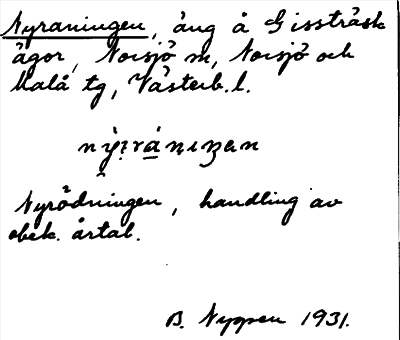 Nyraningen, äng å Gissträsk
ägor, Norsjö sn, Norsjö och
Malå tg, Västerb. l.
Nyrödningen, handling av
obek. årtal.
B. Nyppen 1931.